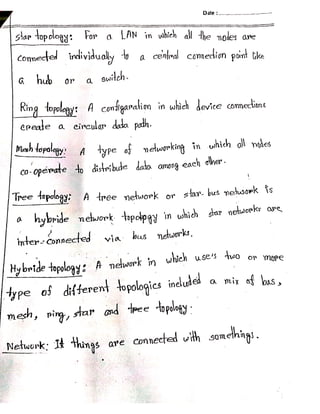 Date :
Star topology: For a LAN in which all the nodes are
Connected individually to a central connection point like
a hub or a switch.
Ring topology: A configaration in which device connections
create a circular data path.
Mesh topology: A type of networking in which all nodes
co-operate to distribute data among each other.
Tree topology: A tree network or star-bus network is
a hybride network topology in which star networks are
inter-connected via bus networks.
Hybride topology: A network in which use's two or more
type of different topologies included a mix of bus,
mesh, ring, star and tree topology.
Network: It things are connected with somethings.